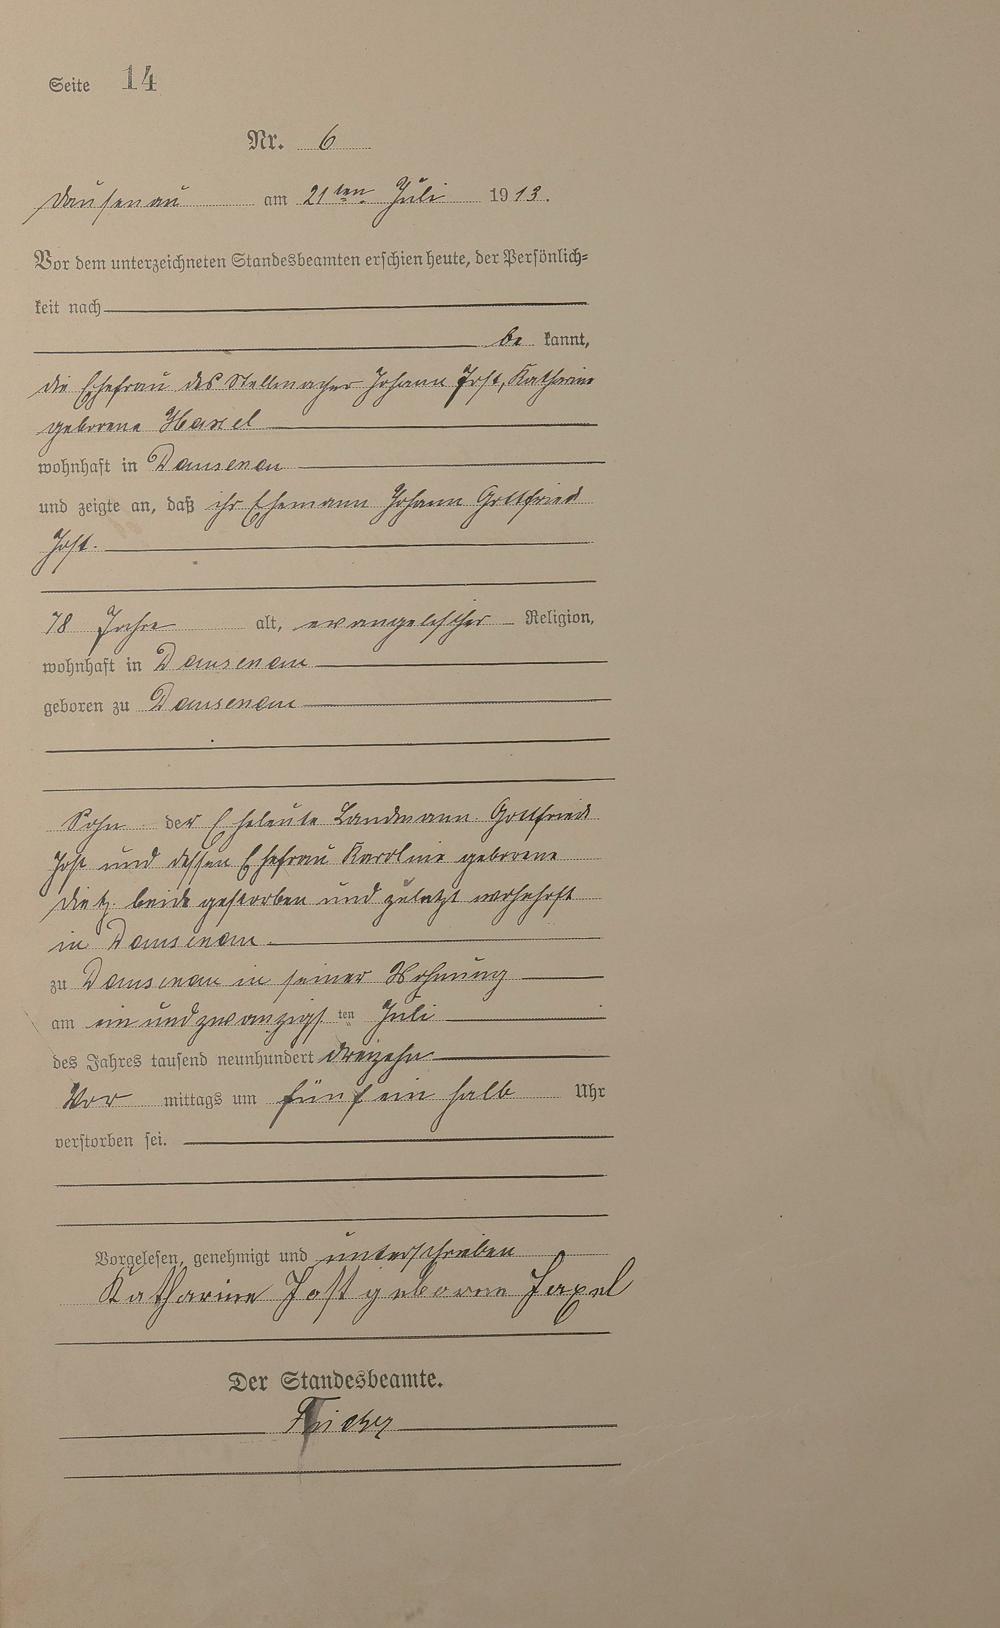 Seite 14
Nr. 6
Dausenau am 21ten Juli 1913.
Vor dem unterzeichneten Standesbeamten erschien heute, der Persönlich-
keit nach
be kannt,
die Ehefrau des Stellmacher Johann Jost, Katharine
geborene
wohnhaft in Dausenau
und zeigte an, daß ihr Ehemann Johann Gottfried
Jost.
78 Jahre alt, evangelischer Religion,
wohnhaft in Dausenau
geboren zu Dausenau
Sohn der Eheleute Landmann Gottfried
Jost und dessen Ehefrau Karoline geborene
Dietz beide gestorben und zuletzt wohnhaft
in Dausenau.
zu Dausenau in seiner Wohnung
am ein und zwanzigs ten Juli
des Jahres tausend neunhundert dreizehn
Vor mittags um fünf ein halb Uhr
verstorben sei.
Vorgelesen, genehmigt und unterschrieben
Katharine Jost geborne
Der Standesbeamte.